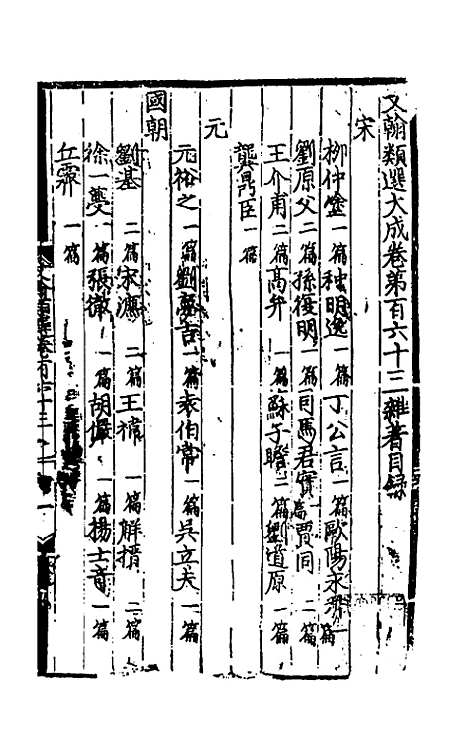 文翰類選大成卷第百六十三 雜著目録
宋
柳仲塗 一篇 种明逸 一篇 丁公言 一篇 歐陽永叔 一篇
劉原父 二篇 孫復明 一篇 司馬君實 一篇 賈同 二篇
王介甫 二篇 高弁 一篇 蘇子瞻 二篇 劉道原 一篇
龔鼎臣 一篇
元
元裕之 一篇 劉夢吉 一篇 袁伯常 一篇 吳立夫 一篇
國朝
劉基 二篇 宋濂 二篇 王禕 一篇 解搢 二篇
徐一夔 一篇 張徹 一篇 胡儼 一篇 楊士竒 一篇
丘霽 一篇